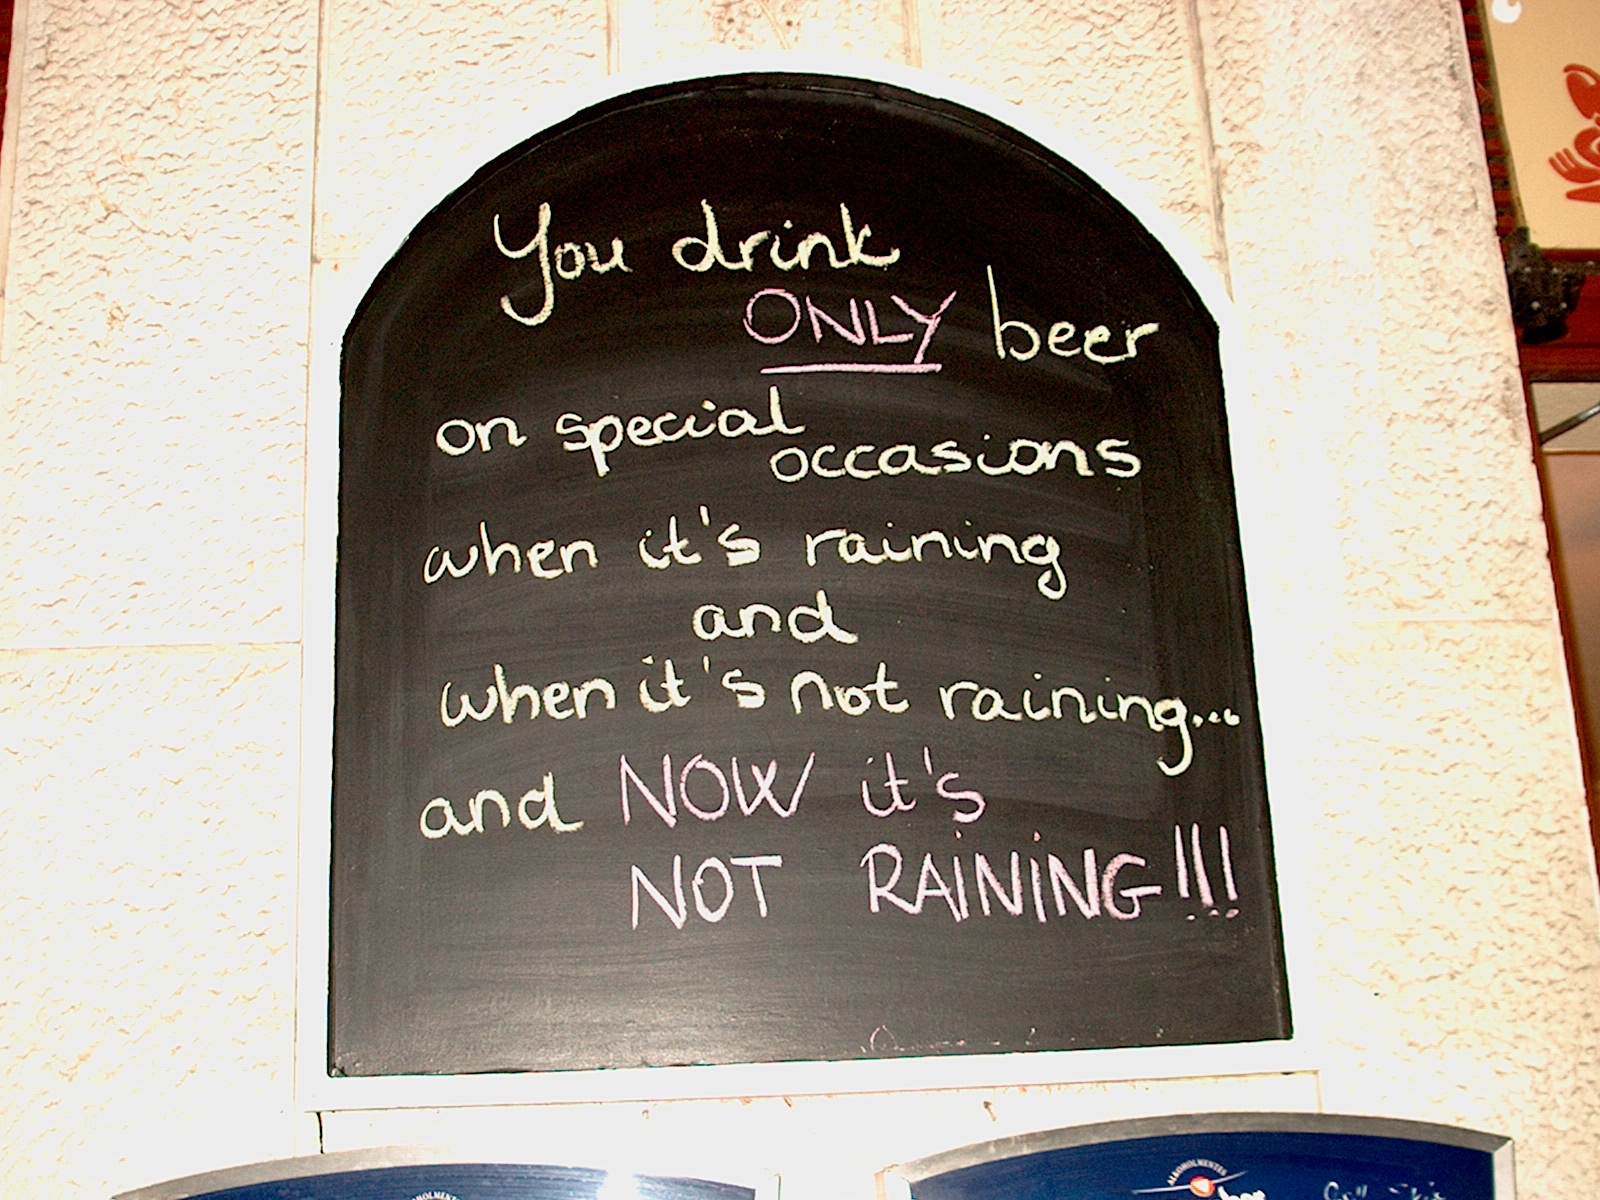 You drink
ONLY beer
on special
occasions
when it's raining
and
when it's not raining...
and NOW it's
NOT RAINING!!!
ALKOHOLMENTES
bar